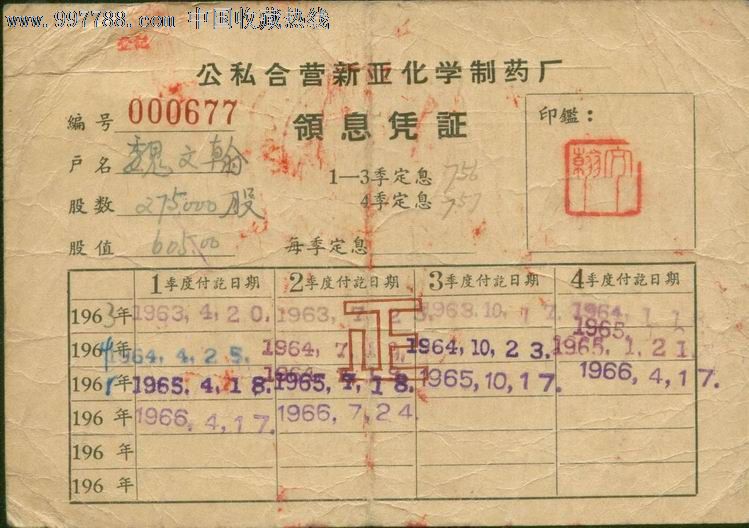 www.997788.com 中国收藏热线
公私合营新亚化学制药厂
编号 000677
領息凭証
印鑑：
户名 魏文翰
1—3季定息 756
4季定息 757
股数 275000股
股值 605.00
每季定息
1季度付訖日期 2季度付訖日期 3季度付訖日期 4季度付訖日期
1963年 1963,4,20. 1963,7,2 1963,10,17. 1964,1
1965,
1964年 1964,4,25. 1964,7 1964,10,23. 1965,1,21.
1965年 1965,4,18. 1965,7,18. 1965,10,17. 1966,4,17.
196 年 1966,4,17. 1966,7,24.
196 年
196 年
正